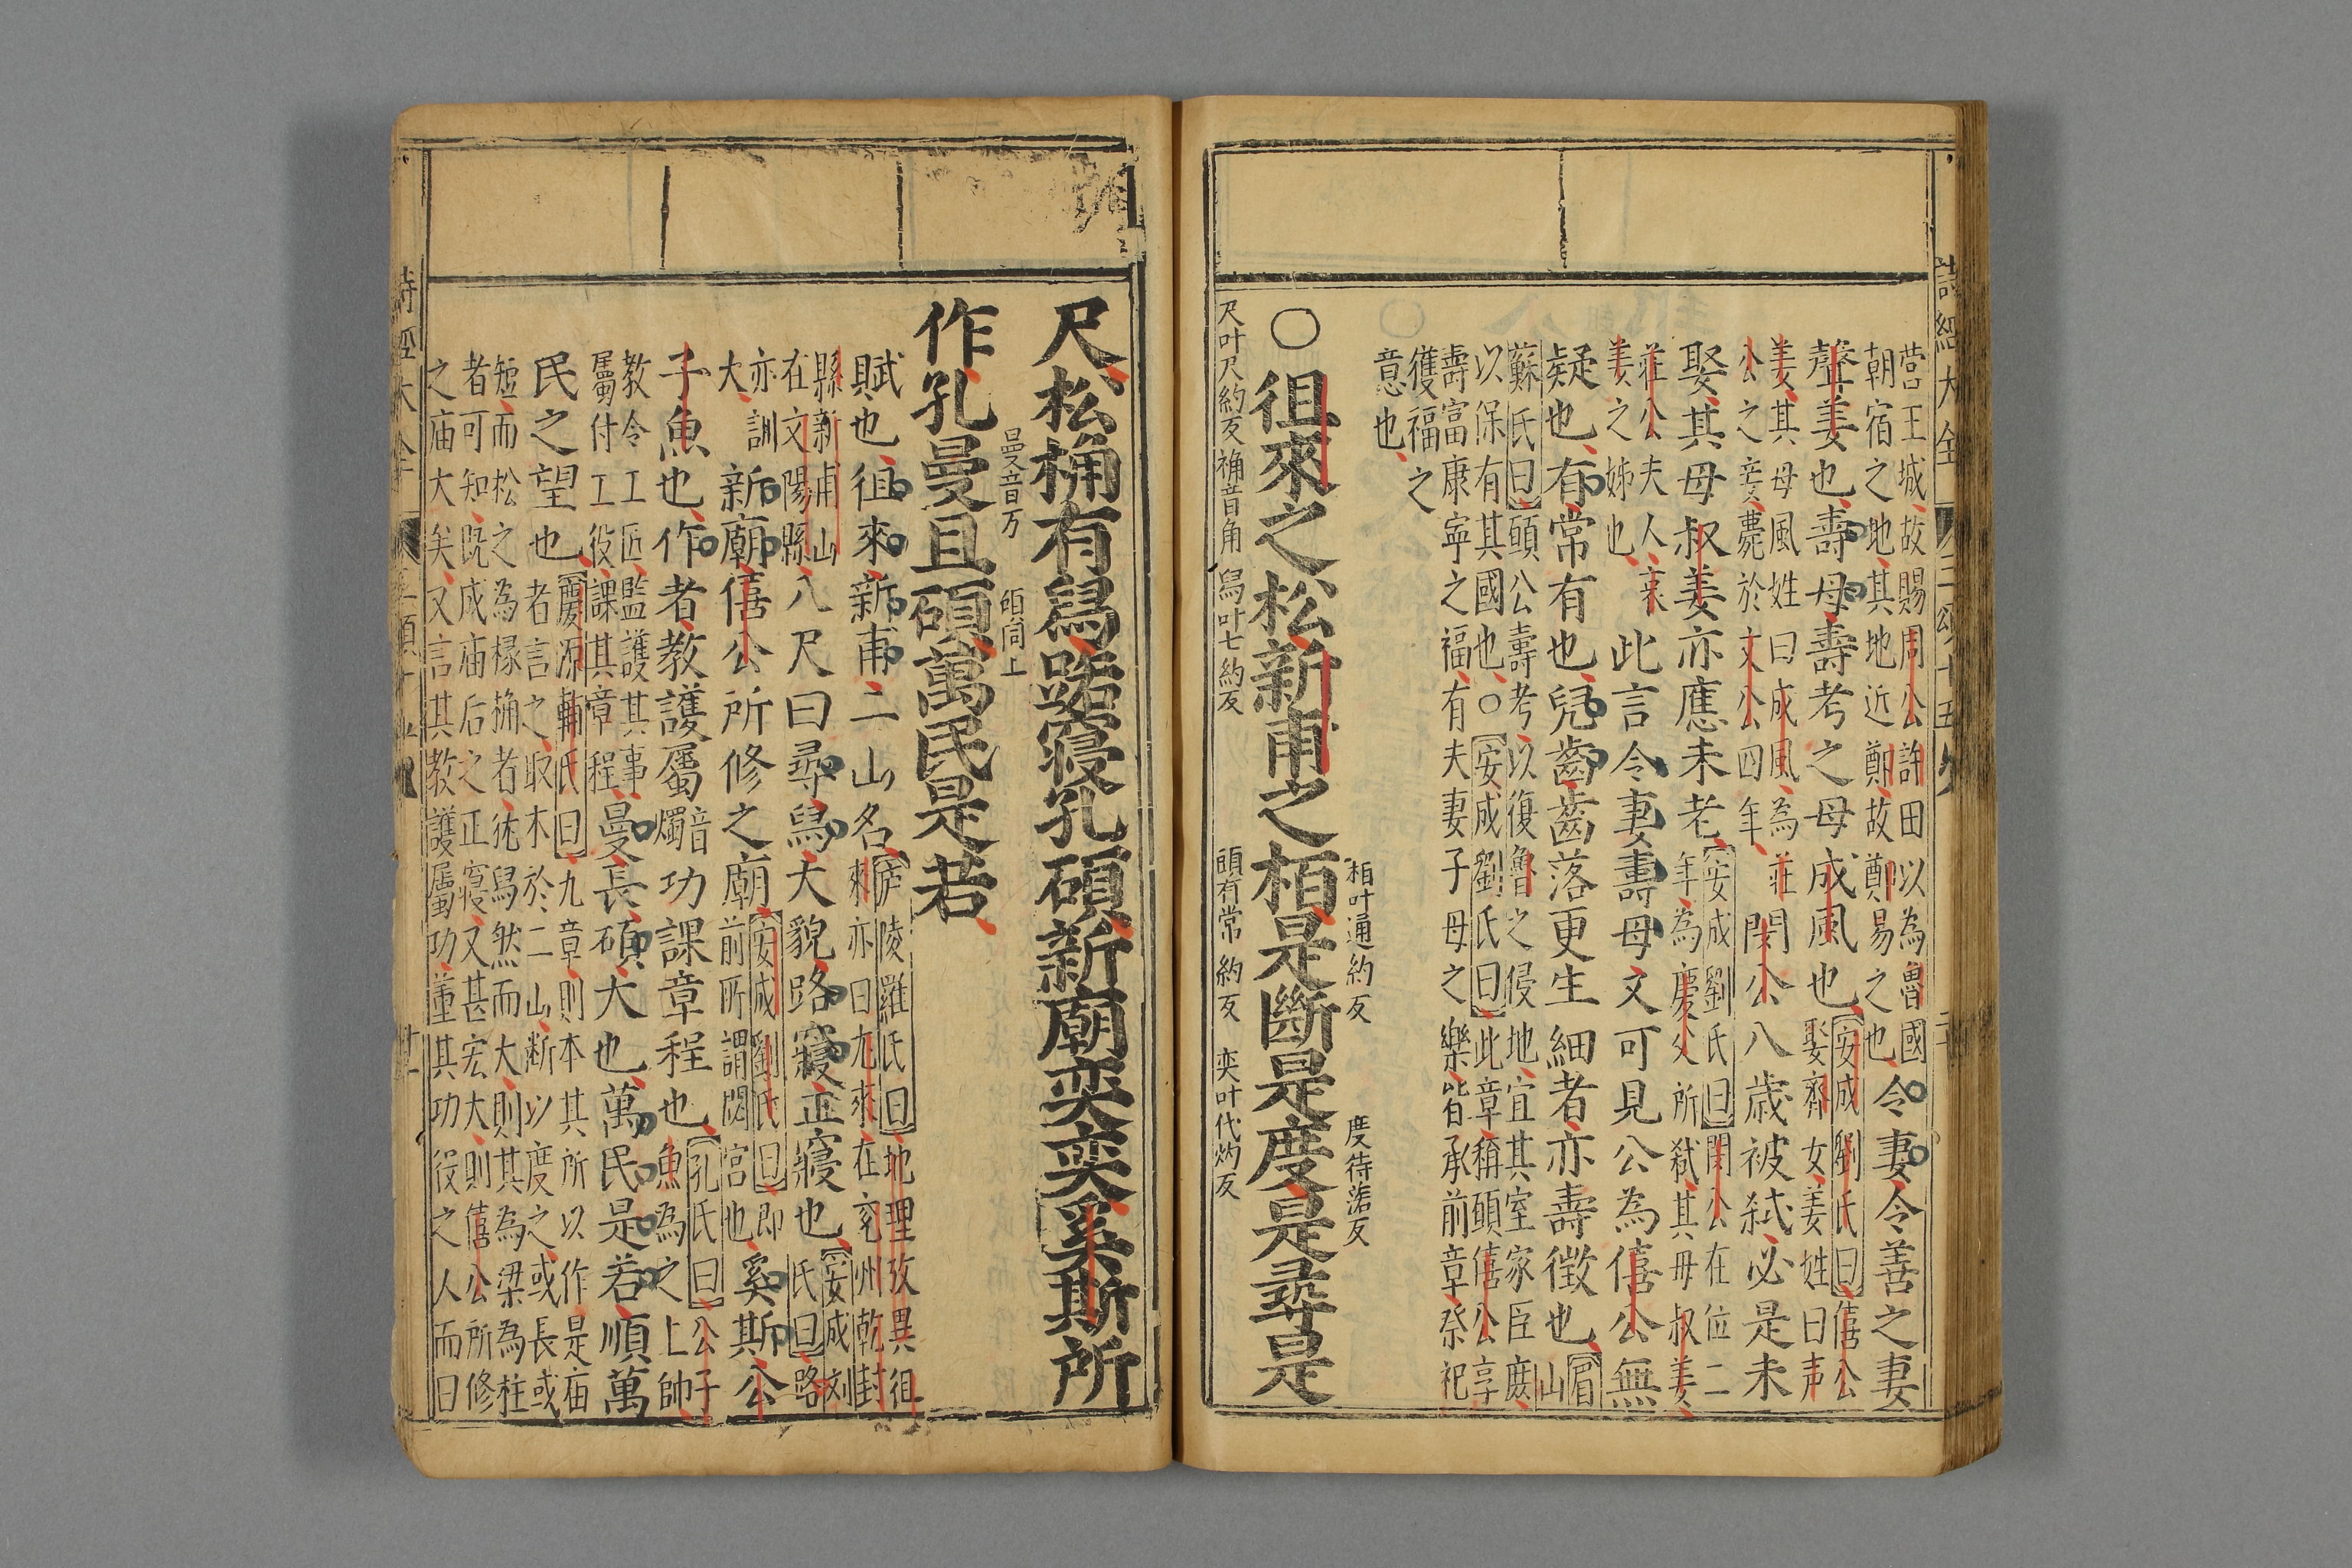 營王城故賜周公許田以為魯國
朝宿之地其地近鄭故鄭易之也令妻令善之妻
聲姜也壽母壽考之母成風也安成劉氏曰僖公
娶齊女姜姓曰声
姜其母風姓曰成風為莊
公之妾薨於文公四年閔公八歲被弑必是未
娶其母叔姜亦應未老安成劉氏曰閔公在位二
年為慶父所弑其母叔姜
莊公夫人哀
姜之姊也此言令妻壽母文可見公為僖公無
疑也有常有也兒齒齒落更生細者亦壽徵也眉
山
蘇氏曰頭公壽考以復魯之侵地宜其室家臣庶
以保有其國也○安成劉氏曰此章稱頭僖公享
壽富康寧之福有夫妻子母之樂皆承前章祭祀
獲福之
意也
栢叶通約反 度待洛反
○徂來之松新甫之栢是斷是度是尋是
尺叶尺約反 桷音角 舄叶七約反 碩有常約反 奕叶代灼反
尺松桷有舄路寢孔碩新廟奕奕奚斯所
曼音万 碩同上
作孔曼且碩萬民是若
賦也徂來新甫二山名庐陵羅氏曰地理攷異徂
來亦曰尤來在兗州乾封
縣新甫山
在文陽縣八尺曰尋舄大貌路寢正寢也安成刘
氏曰路
亦訓
大新廟僖公所修之廟安成劉氏曰即
前所謂閟宮也奚斯公
子魚也作者教護屬音
燭功課章程也孔氏曰公子
魚為之上帥
教令工匠監護其事
屬付工役課其章程曼長碩大也萬民是若順萬
民之望也慶源輔氏曰九章則本其所以作是庙
者言之取木於二山断以度之或長或
短而松之為椽桷者㧞舄然而大則其為梁為柱
者可知既成庙后之正寢又甚宏大則僖公所修
之庙大矣又言其教護屬功董其功役之人而曰